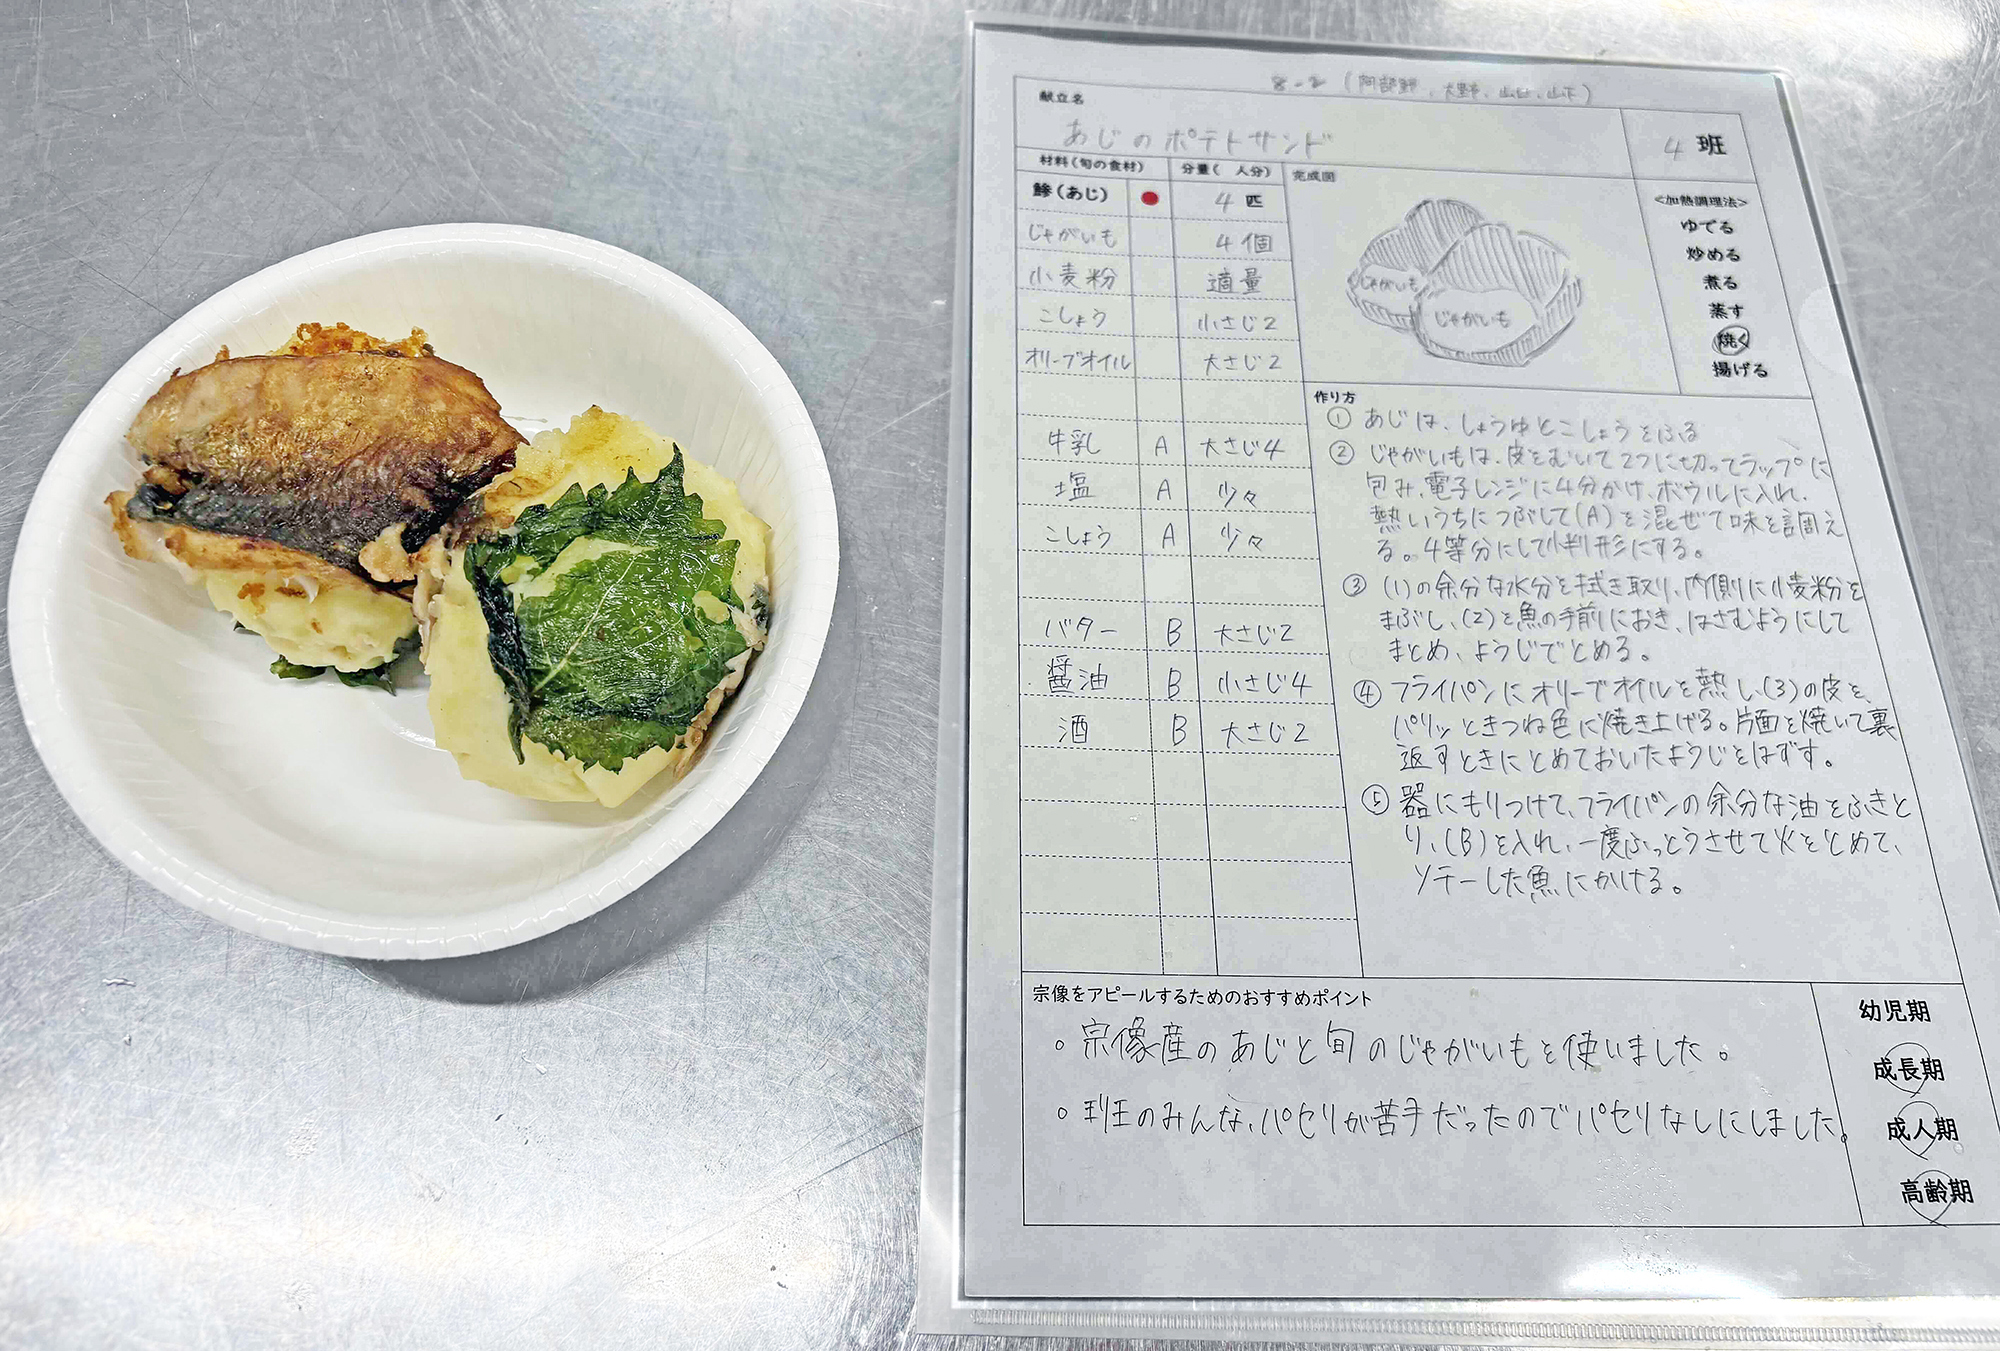 8-2 (阿部鮃、大野、山口、山下)
献立名
あじのポテトサンド
4 班
材料(旬の食材) 分量( 人分)
鯵(あじ) 4 匹
じゃがいも 4個
小麦粉 適量
こしょう 小さじ2
オリーブオイル 大さじ2
牛乳 A 大さじ4
塩 A 少々
こしょう A 少々
バター B 大さじ2
醤油 B 小さじ4
酒 B 大さじ2
完成図
じゃがいも
じゃがいも
<加熱調理法>
ゆでる
炒める
煮る
蒸す
焼く
揚げる
作り方
① あじは、しょうゆとこしょうをふる
② じゃがいもは、皮をむいて2つに切ってラップに
包み、電子レンジに4分かけ、ボウルに入れ、
熱いうちにつぶして(A)を混ぜて味を調え
る。4等分にして小判形にする。
③ (1)の余分な水分を拭き取り、内側に小麦粉を
まぶし、(2)を魚の手前におき、はさむようにして
まとめ、ようじでとめる。
④ フライパンにオリーブオイルを熱し、(3)の皮を、
パリッときつね色に焼き上げる。片面を焼いて裏
返すときにとめておいたようじをはずす。
⑤ 器にもりつけて、フライパンの余分な油をふきと
り、(B)を入れ、一度ふっとうさせて火をとめて、
ソテーした魚にかける。
宗像をアピールするためのおすすめポイント
○ 宗像産のあじと旬のじゃがいもを使いました。
○ 班のみんな、パセリが苦手だったのでパセリなしにしました。
幼児期
成長期
成人期
高齢期